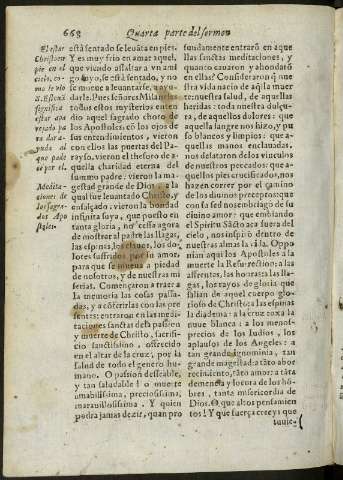 668 Quarta parte del sermon
El estar
Christo en
pie en el
cielo, co-
mo le vio
S. Esteuã
significa
estar apa
rejado pa
ra dar a-
yuda al
que pade
ce por el.
Medita-
ciones de
los sagra-
dos Apo
stoles.
està sentado se leuãta en pies.
Y es muy frio en amar aquel,
que viendo assaltar a vn ami
go suyo, se està sentado, y no
se mueue a leuantarse, a ayu-
darle. Pues señores Milan
todos estos mysterios enten
dio aquel sagrado choro de
los Apostoles: cõ los ojos de
sus entendimientos, vieron
con ellos las puertas del Pa-
rayso. vieron el thesoro de a-
quella claridad eterna del
summo padre: vieron la ma-
gestad grande de Dios a la
qual fue leuantado Christo, y
ensalçado: vieron la bondad
infinita suya, que puesto en
tanta gloria, no cessa agora
de mostrar al padre las llagas,
las espinas, los dolores suffridos por su amor
para que se mueua a piedad
de nosotros, y de nuestras mi
serias. Començaron a traer a
la memoria las cosas passa-
das, y a cõferirlas con las pre
sentes: entraron en las medi-
taciones sanctas de la passion
y muerte de Christo, sacrifi-
cio sanctissimo, offrecido
en el altar de la cruz, por la
salud de todo el genero hu-
mano. O passion desseable,
y tan saludable! o muerte
amabilissima, preciosissima,
marauillosissima. Y quien
podra jamas dezir, quan pro
fundamente entrarõ en aque
llas sanctas meditaciones, y
quanto cauaron y ahondarõ
en ellas? Consideraron q̃ nue
stra vida nacio de aq̃lla muer
te: nuestra salud, de aquellas
heridas: toda nuestra dulçu-
ra, de aquellos dolores: que
aquella sangre nos hizo, y pu
so blancos y limpios: que a-
quellas manos enclauadas,
nos desataron de los vinculos
de nuestros peccados: que a-
quellos pies crucificados, nos
hazen correr por el camino
de los diuinos preceptos: que
con su sed nos embriago de su
diuino amor: que embiando
el Spiritu Sãcto aca fuera del
cielo, nos inspirò dentro de
nuestras almas la vida. Oppo
nian aqui los Apostoles a la
muerte la Resurrection: a las
affrentas, las honras: a las lla-
gas, los rayos de gloria que
salian de aquel cuerpo glo-
rioso de Christo: a las espinas
la diadema: a la cruz toxa la
nuue blanca: a los menos-
precios de los Iudios, los
aplausos de los Angeles: a
tan grande ignominia, tan
grande magestad: a tãto abor
recimiento, tãto amor: a tãta
demencia y locura de los hõ-
bres, tanta misericordia de
Dios. O, que altos pensamien
tos! Y que fuerça crees que
tuuie-